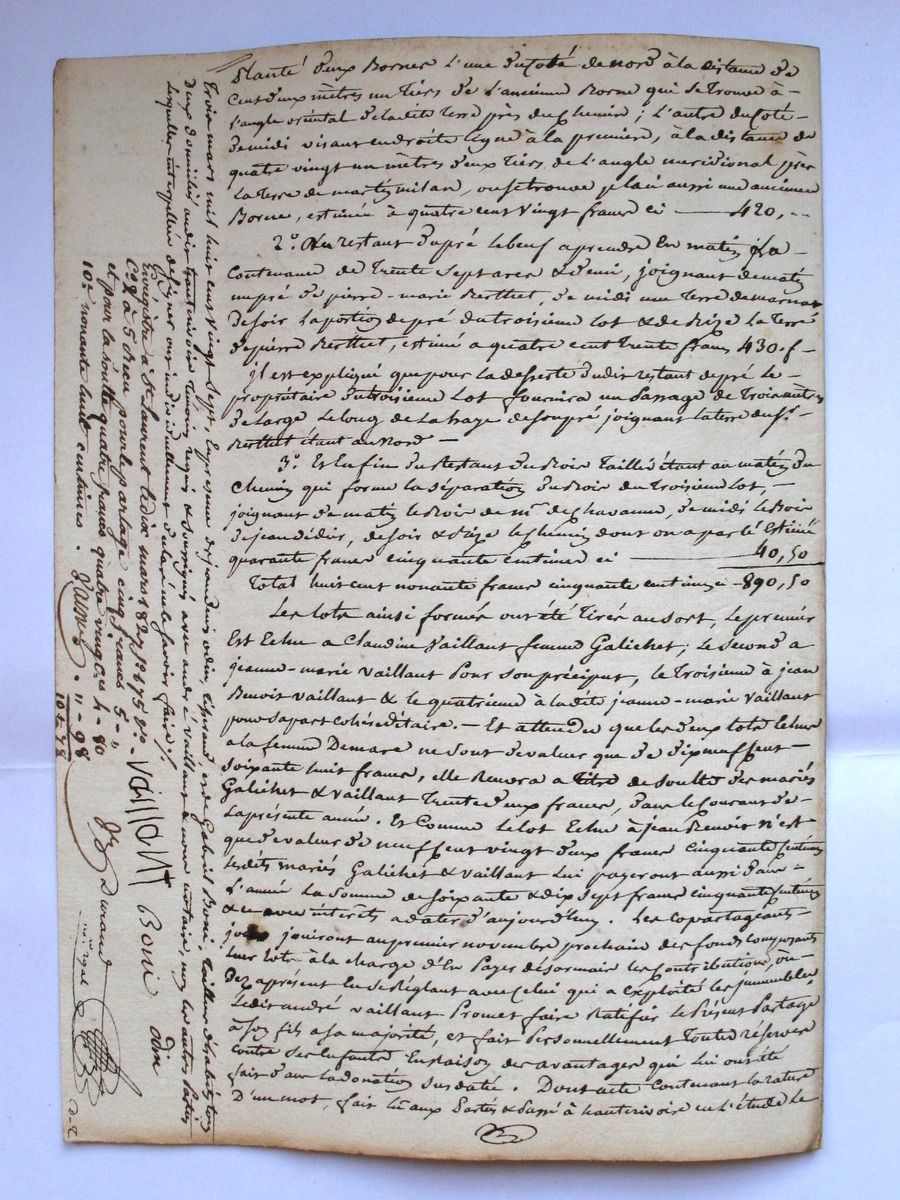 Planté deux Bornes l'une du Coté de nord à la distance de
Cent deux mètres un Tiers de l'ancienne Borne qui se Trouve à
l'angle oriental de ladite Terre près du Chemin ; l'autre du Coté
de midi visant en droite ligne à la première, à la distance de
quatre vingt un mètres deux Tiers de l'angle meridional près
la Terre de martin milan, ou se trouve plan aussi une ancienne
Borne, estimée à quatre cent Vingt francs ci — 420, --
2.º Du restant du pré lebeuf a prendre En matin La
Contenance de Trente Sept ares & demi, joignant de matin
un pré de pierre-marie Berthet, de midi une Terre
de soir la portion de pré du troisième Lot & de Bize la Terre
de pierre Berthet, estimé a quatre cent Trente francs 430.f -
jl est expliqué que pour la desserte dudit restant de pré le
propriétaire du troisième Lot fournira un Passage de Trois mètres
de large Le long de la haye de son pré joignant la terre dud.t
Berthet étant au Nord —
3.º Et Enfin du Restant du Bois Taillis étant au matin du
Chemin qui forme la séparation du Bois du Troisième Lot, -
joignant de matin le Bois de m.r de Chavanne, de midi le Bois
de jean dédier, de soir & Bize le Chemin dont on a parlé Estimé
quarante francs cinquante centimes ci — 40,50
Total huit cent nonante francs cinquante centimes ci - 890,50
Les lots ainsi formés ont été Tirés au sort, le premier
Est Echu a Claudine Vaillant femme Galichet ; le second a
jeanne-marie Vaillant Pour son préciput, le Troisième à jean
Benoit Vaillant & le quatrième à ladite jeanne-marie Vaillant
pour sa part cohéreditaire. — Et attendu que les deux lots Echus
a la femme Demare ne sont de valeur que de dix neuf cent
soixante huit francs, elle Recevra a Titre de soulte des mariés
Galichet & Vaillant Trente deux francs, dans le Courant de
la présente année. Et Comme le lot Echu à jean Benoit n'est
que de valeur de neuf cent vingt deux francs Cinquante Centimes
lesdits mariés Galichet & Vaillant lui payeront aussi dans
l'année La somme de soixante & dix sept francs cinquante Centimes
& ce avec intérêts a dater d'aujourd'hui. Les Copartageants
jouiront au premier novembre prochain des fonds composants
leurs lots à la charge d'En Payer désormais les Contributions, ou
dez aprésent En se Réglant avec Celui qui a exploité les jmmeubles
Ledit andré Vaillant Promet faire Ratifier le Présent Partage
à son fils a sa majorité, et fait Personnellement Toutes réserves
contre ses Enfants En Raison des avantages qui Lui ont été
fait dans la donation sus datée. Dont acte Contenant la rature
D'un mot, fait Lu aux Parties & Passé à hauterivoire en l'étude le
Trois mars mil huit cent Vingt Sept, En présence de jean denis odin, et de Gabriel Boni, Tailleur d'habits, tous
Deux domiciliés audit hauterivoire Témoins requis & soussignés avec andré Vaillant & nous notaire, non les autres Parties
Lesquelles interpellées de signer ont individuellement déclaré ne le savoir faire ./.
Enregistré à St Laurent le dix mars 1827 f.º 175 v.º
C.es 4 à 5 Reçu pour le partage cinq francs 5 - "
et pour la soulte quatre francs quatre vingt c.es 4 - 80
10.e nonante huit centimes . " - 98
10 - 78
Vaillant
Boni
Odin
Durand